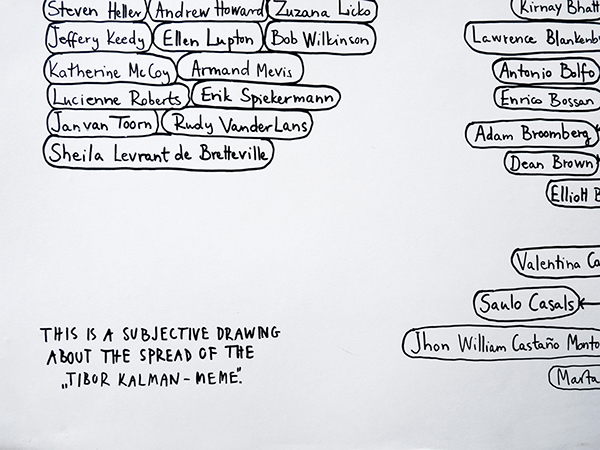 Steven Heller Andrew Howard Zuzana Licko
Jeffery Keedy Ellen Lupton Bob Wilkinson
Katherine McCoy Armand Mevis
Lucienne Roberts Erik Spiekermann
Jan van Toorn Rudy VanderLans
Sheila Levrant de Bretteville
THIS IS A SUBJECTIVE DRAWING
ABOUT THE SPREAD OF THE
„TIBOR KALMAN-MEME”.
Kirnay Bhatt
Lawrence Blankenb
Antonio Bolfo
Enrico Bossan
Adam Broomberg
Dean Brown
Elliott B
Valentina Ca
Saulo Casals
Jhon William Castaño Monto
Marta